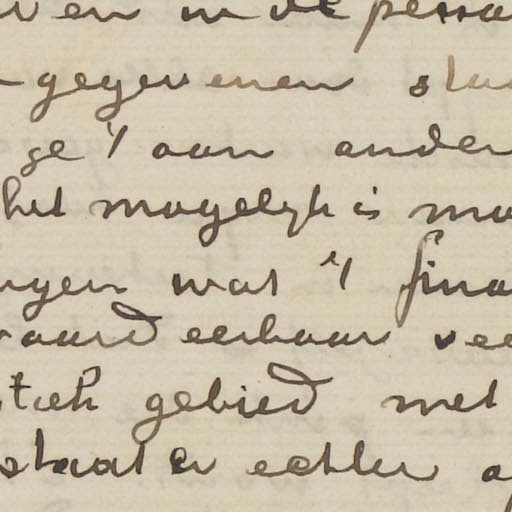 ven in de perso
gegevenen sla
ge 't aan ander
het mogelijk is ma
ngen wat 't fina
vaard eerbaar vee
stiek gebied met
staat er echter o